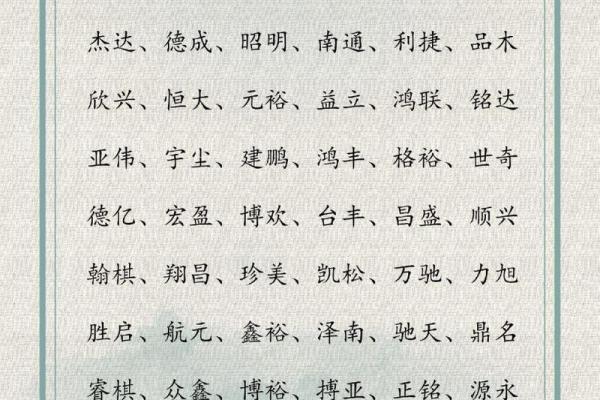 杰达、德成、昭明、南通、利捷、品木
欣兴、恒大、元裕、益立、鸿联、铭达
亚伟、宇尘、建鹏、鸿丰、格裕、世奇
德亿、宏盈、博欢、台丰、昌盛、顺兴
翰棋、翔昌、珍美、凯松、万驰、力旭
胜启、航元、鑫裕、泽南、驰天、鼎名
睿棋、众鑫、博裕、搏亚、正铭、源永